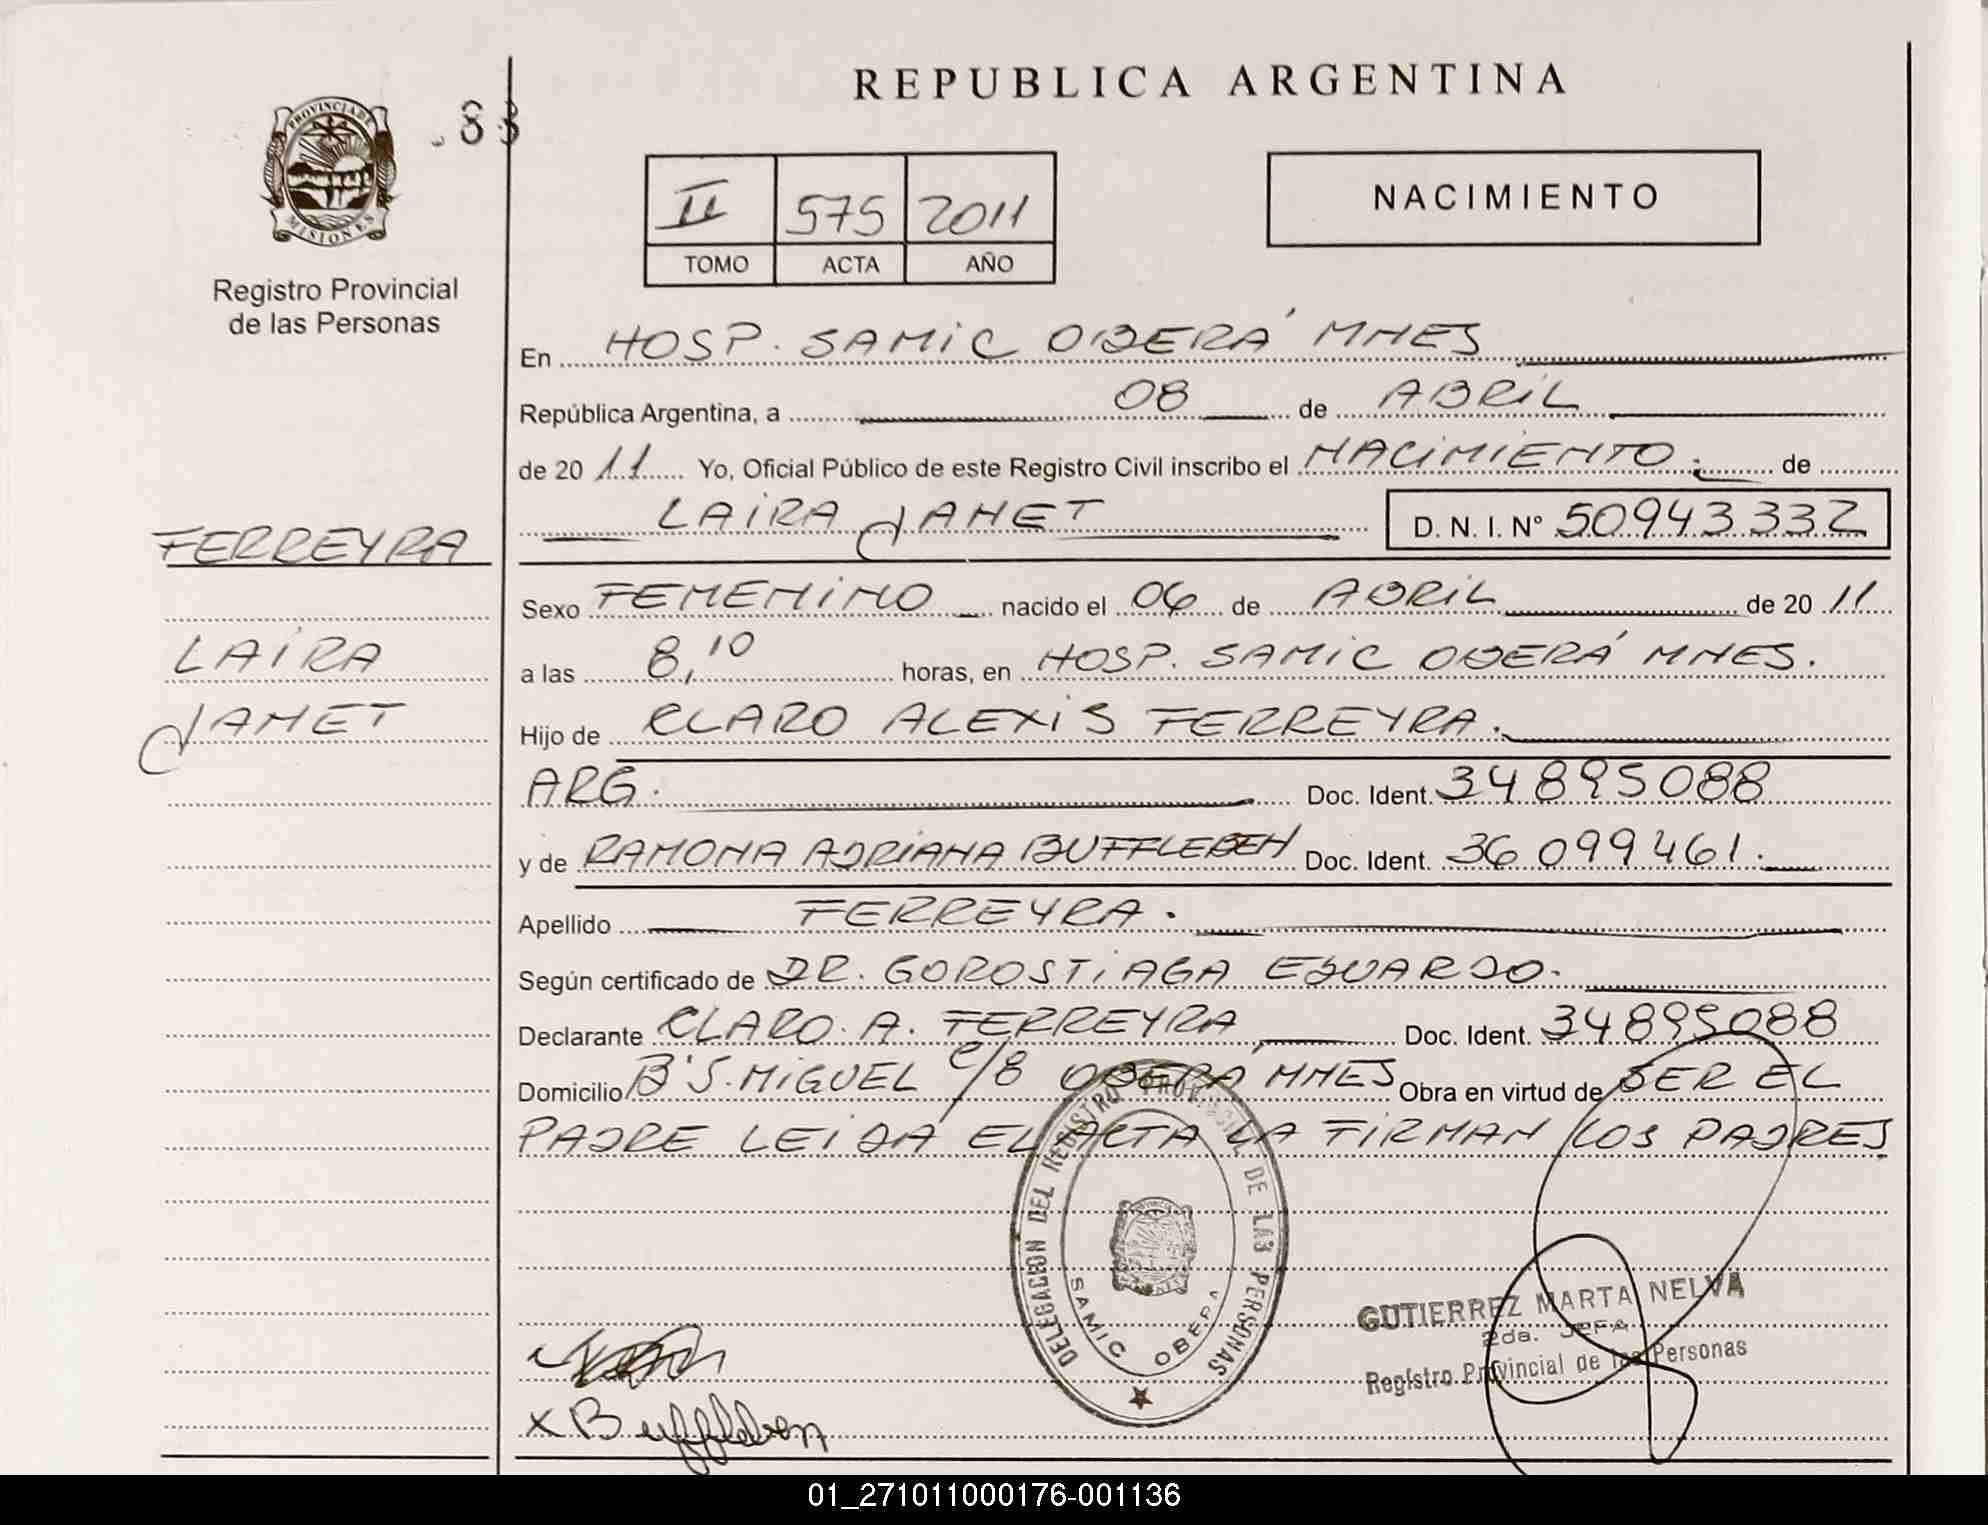 REPUBLICA ARGENTINA
PROVINCIA DE
MISIONES
Registro Provincial
de las Personas
II 575 2011
TOMO ACTA AÑO
NACIMIENTO
En HOSP. SAMIC OBERÁ MNES
República Argentina, a 08 de ABRIL
de 20 11 Yo, Oficial Público de este Registro Civil inscribo el NACIMIENTO. de
LAIRA JANET D. N. I. N° 50943332
FERREYRA
LAIRA
JANET
Sexo FEMENINO nacido el 06 de ABRIL de 20 11
a las 8,10 horas, en HOSP. SAMIC OBERÁ MNES.
Hijo de CLARO ALEXIS FERREYRA.
ARG. Doc. Ident. 34895088
y de RAMONA ADRIANA BUFFLEBEN Doc. Ident. 36099461.
Apellido FERREYRA.
Según certificado de DR. GOROSTIAGA EDUARDO.
Declarante CLARO. A. FERREYRA, Doc. Ident. 34895088
Domicilio B° S. MIGUEL C/8 OBERÁ MNES Obra en virtud de SER EL
PADRE LEIDA EL ACTA LA FIRMAN LOS PADRES
DELEGACION DEL REGISTRO PROVINCIAL DE LAS PERSONAS
SAMIC OBERA
GUTIERREZ MARTA NELVA
2da. JEFA
Registro Provincial de las Personas
X Buffleben
01_271011000176-001136